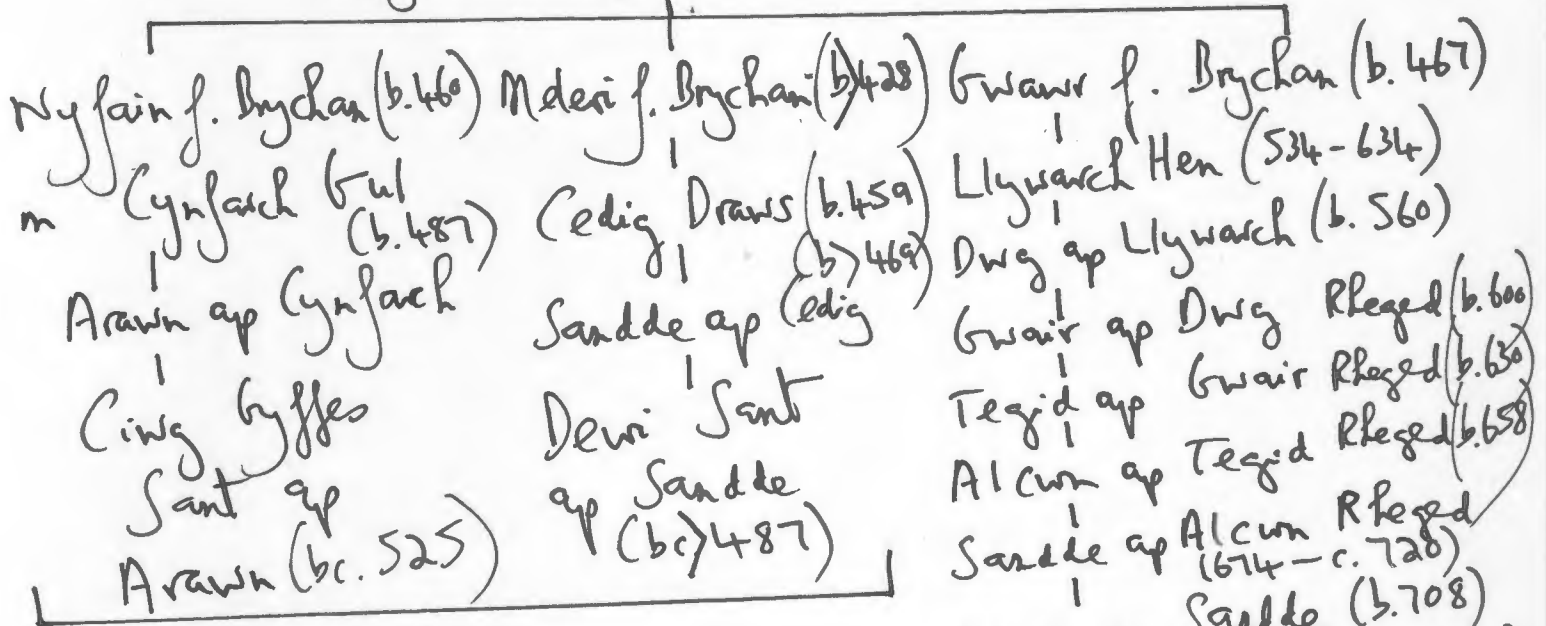 Nyfain f. Brychan (b. 460)
m Cynfarch Gul
(b. 487)
Arawn ap Cynfarch
Ciwg Gyffes
Sant ap
Arawn (bc. 525)
Mderi f. Brychan (b>428)
Cedig Draws (b. 459)
(b>469)
Sandde ap Cedig
Dewi Sant
ap Sandde
(bc>487)
Gwawr f. Brychan (b. 467)
Llywarch Hen (534-634)
Dwg ap Llywarch (b. 560)
Gwair ap Dwg Rheged (b. 600)
Tegid ap Gwair Rheged (b. 630)
Alcwn ap Tegid Rheged (b. 658)
Sandde ap Alcwn Rheged
(674 - c. 728)
Sandde (b. 708)